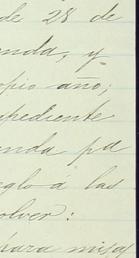 de 28 de
enda, y
opio año;
pediente
enda pa
eglo á las
olver:
para misas